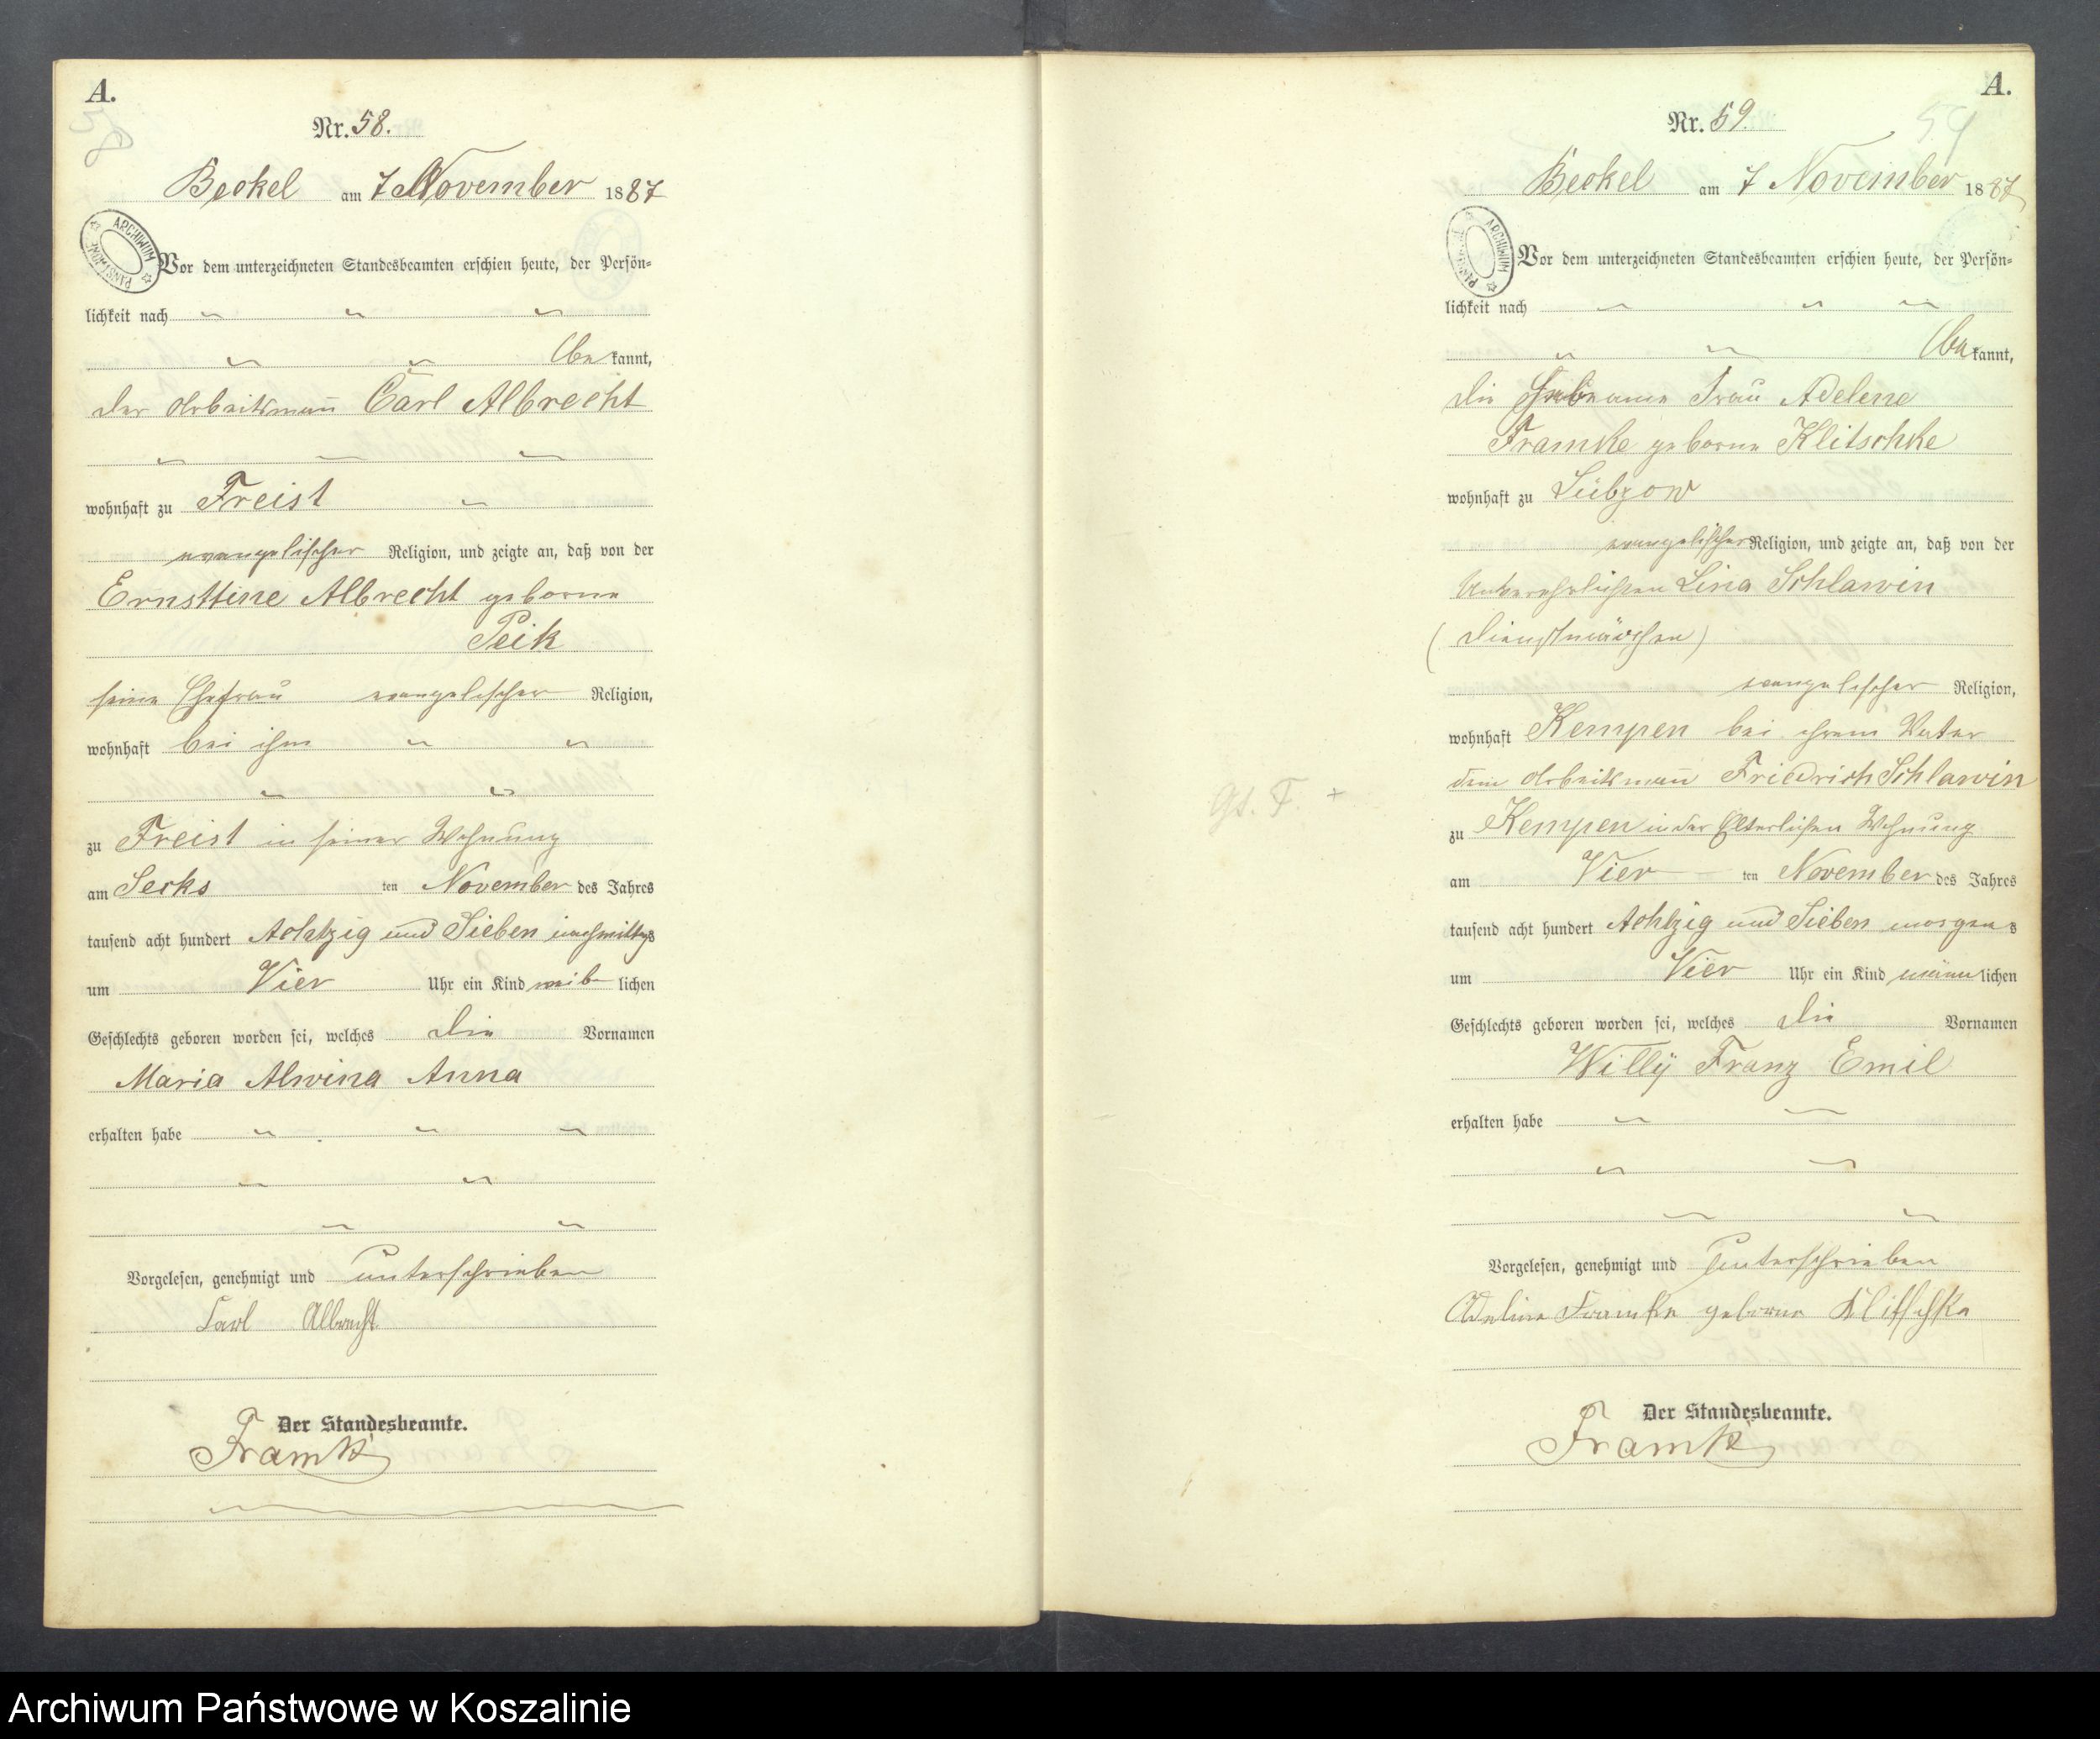 A.
58
Nr. 58.
Beckel am 7 November 1887
ARCHIWUM PAŃSTWOWE
Vor dem unterzeichneten Standesbeamten erschien heute, der Persön=
lichkeit nach
bekannt,
der Arbeitsmann Carl Albrecht
wohnhaft zu Freist
evangelischer Religion, und zeigte an, daß von der
Ernsttine Albrecht geborne
Peik
seine Ehefrau evangelischer Religion,
wohnhaft bei ihm
zu Freist in seiner Wohnung
am Secks ten November des Jahres
tausend acht hundert Achtzig und Sieben nachmittags
um Vier Uhr ein Kind weib lichen
Geschlechts geboren worden sei, welches die Vornamen
Maria Alwina Anna
erhalten habe
Vorgelesen, genehmigt und unterschrieben
Carl Albrecht
Der Standesbeamte.
Framke
A.
59
Nr. 59.
Beckel am 7 November 1887
ARCHIWUM PAŃSTWOWE
Vor dem unterzeichneten Standesbeamten erschien heute, der Persön=
lichkeit nach
bekannt,
die Hebeamme Frau Adelene
Framke geborne Klitschke
wohnhaft zu Lübzow
evangelischer Religion, und zeigte an, daß von der
Unverehelichten Lina Schlawin
(Dienstmädchen)
evangelischer Religion,
wohnhaft Kempen bei ihrem Vater
dem Arbeitsmann Friedrich Schlawin
zu Kempen in der Elterlichen Wohnung
am Vier ten November des Jahres
tausend acht hundert Achtzig und Sieben morgens
um Vier Uhr ein Kind männlichen
Geschlechts geboren worden sei, welches die Vornamen
Willÿ Franz Emil
erhalten habe
Vorgelesen, genehmigt und unterschrieben
Adeline Framke geborne Klitschke
Der Standesbeamte.
Framke
Archiwum Państwowe w Koszalinie